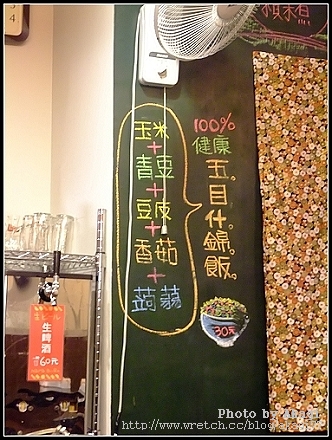 玉米
+
青豆
+
豆皮
+
香茹
+
蒟蒻
100%
健康
五。目什。錦。飯。
30元
生ビール
生啤酒
60元
Photo by
http://www.wretch.cc/blog/